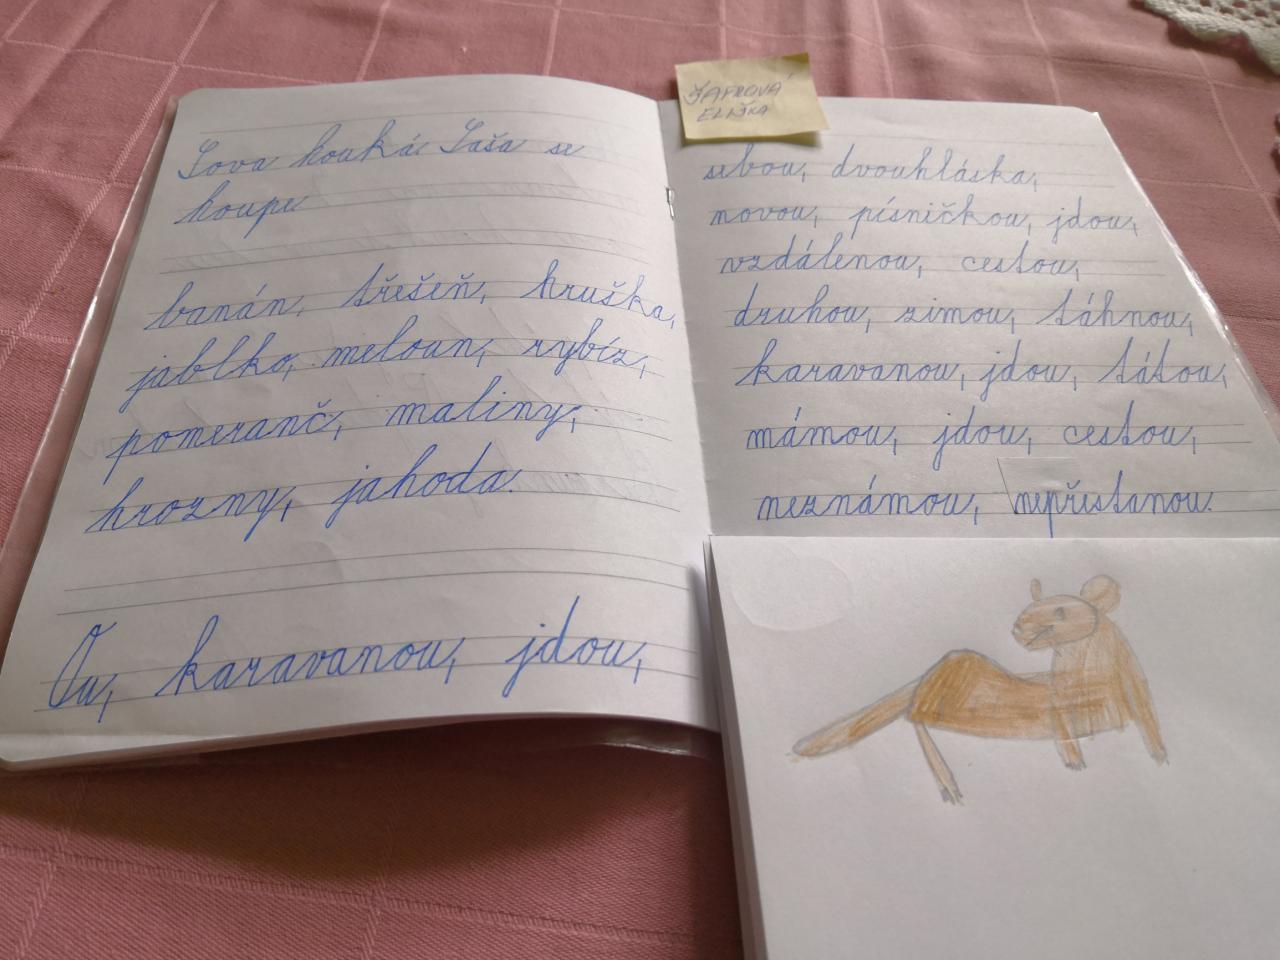 Sova houká. Saša se
houpe
banán, třešeň, hruška,
jablko, meloun, rybíz,
pomeranč, maliny,
hrozny, jahoda.
Ou, karavanou, jdou,
ŠAFROVÁ
ELIŠKA
sebou, dvouhláska,
novou, písničkou, jdou,
vzdálenou, cestou,
druhou, zimou, táhnou,
karavanou, jdou, tátou,
mámou, jdou, cestou,
neznámou, nepřestanou.